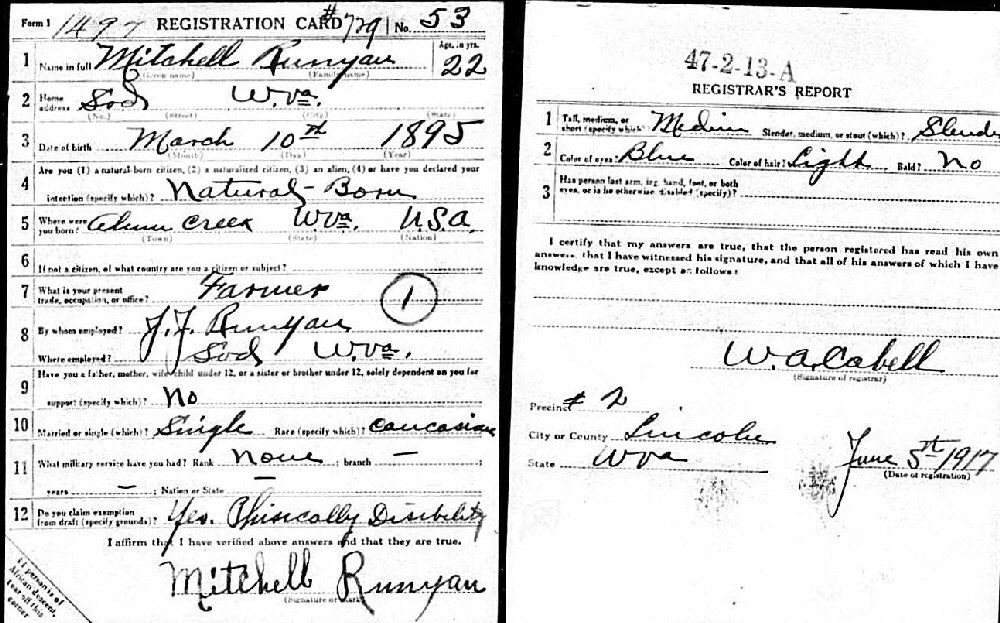 Form 1 1497 REGISTRATION CARD #729 No. 53
1 Name in full Mitchell Runyan Age, in yrs. 22
(Given name) (Family name)
2 Home address Sod W.Va.
(No.) (Street) (City) (State)
3 Date of birth March 10th 1895
(Month) (Day) (Year)
Are you (1) a natural-born citizen, (2) a naturalized citizen, (3) an alien, (4) or have you declared your
4 intention (specify which)? Natural-Born
5 Where were you born? Alum Creek W.Va. U.S.A.
(Town) (State) (Nation)
6 If not a citizen, of what country are you a citizen or subject?
7 What is your present trade, occupation, or office? Farmer 1
8 By whom employed? J.J. Runyan
Where employed? Sod W.Va.
9 Have you a father, mother, wife, child under 12, or a sister or brother under 12, solely dependent on you for
support (specify which)? No
10 Married or single (which)? Single Race (specify which)? Caucasian
11 What military service have you had? Rank None ; branch — ;
years — ; Nation or State —
12 Do you claim exemption from draft (specify grounds)? Yes. Phisically Disibility
I affirm that I have verified above answers and that they are true.
Mitchell Runyan
(Signature or mark)
If person is of
African descent,
tear off this
corner
47-2-13-A
REGISTRAR'S REPORT
1 Tall, medium, or short (specify which)? Medium Slender, medium, or stout (which)? Slender
2 Color of eyes? Blue Color of hair? Light Bald? No
3 Has person lost arm, leg, hand, foot, or both eyes, or is he otherwise disabled (specify)?
I certify that my answers are true, that the person registered has read his own
answers, that I have witnessed his signature, and that all of his answers of which I have
knowledge are true, except as follows:
W.A. Cabell
(Signature of registrar)
Precinct # 2
City or County Lincoln
State W Va
June 5th 1917
(Date of registration)